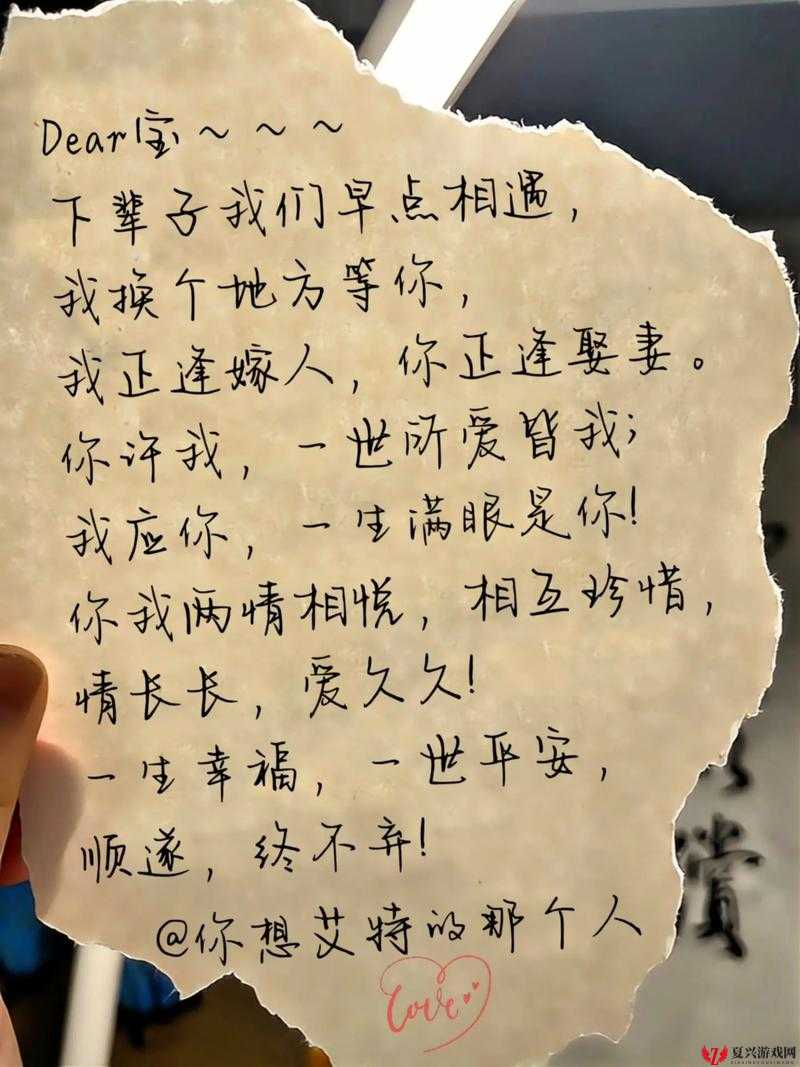 Dear宝～～～
下辈子我们早点相遇，
我换个地方等你，
我正逢嫁人，你正逢娶妻。
你许我，一世所爱皆我；
我应你，一生满眼是你！
你我两情相悦，相互珍惜，
情长长，爱久久！
一生幸福，一世平安，
顺遂，终不弃！
@你想艾特的那个人
Love
赏
夏兴游戏网